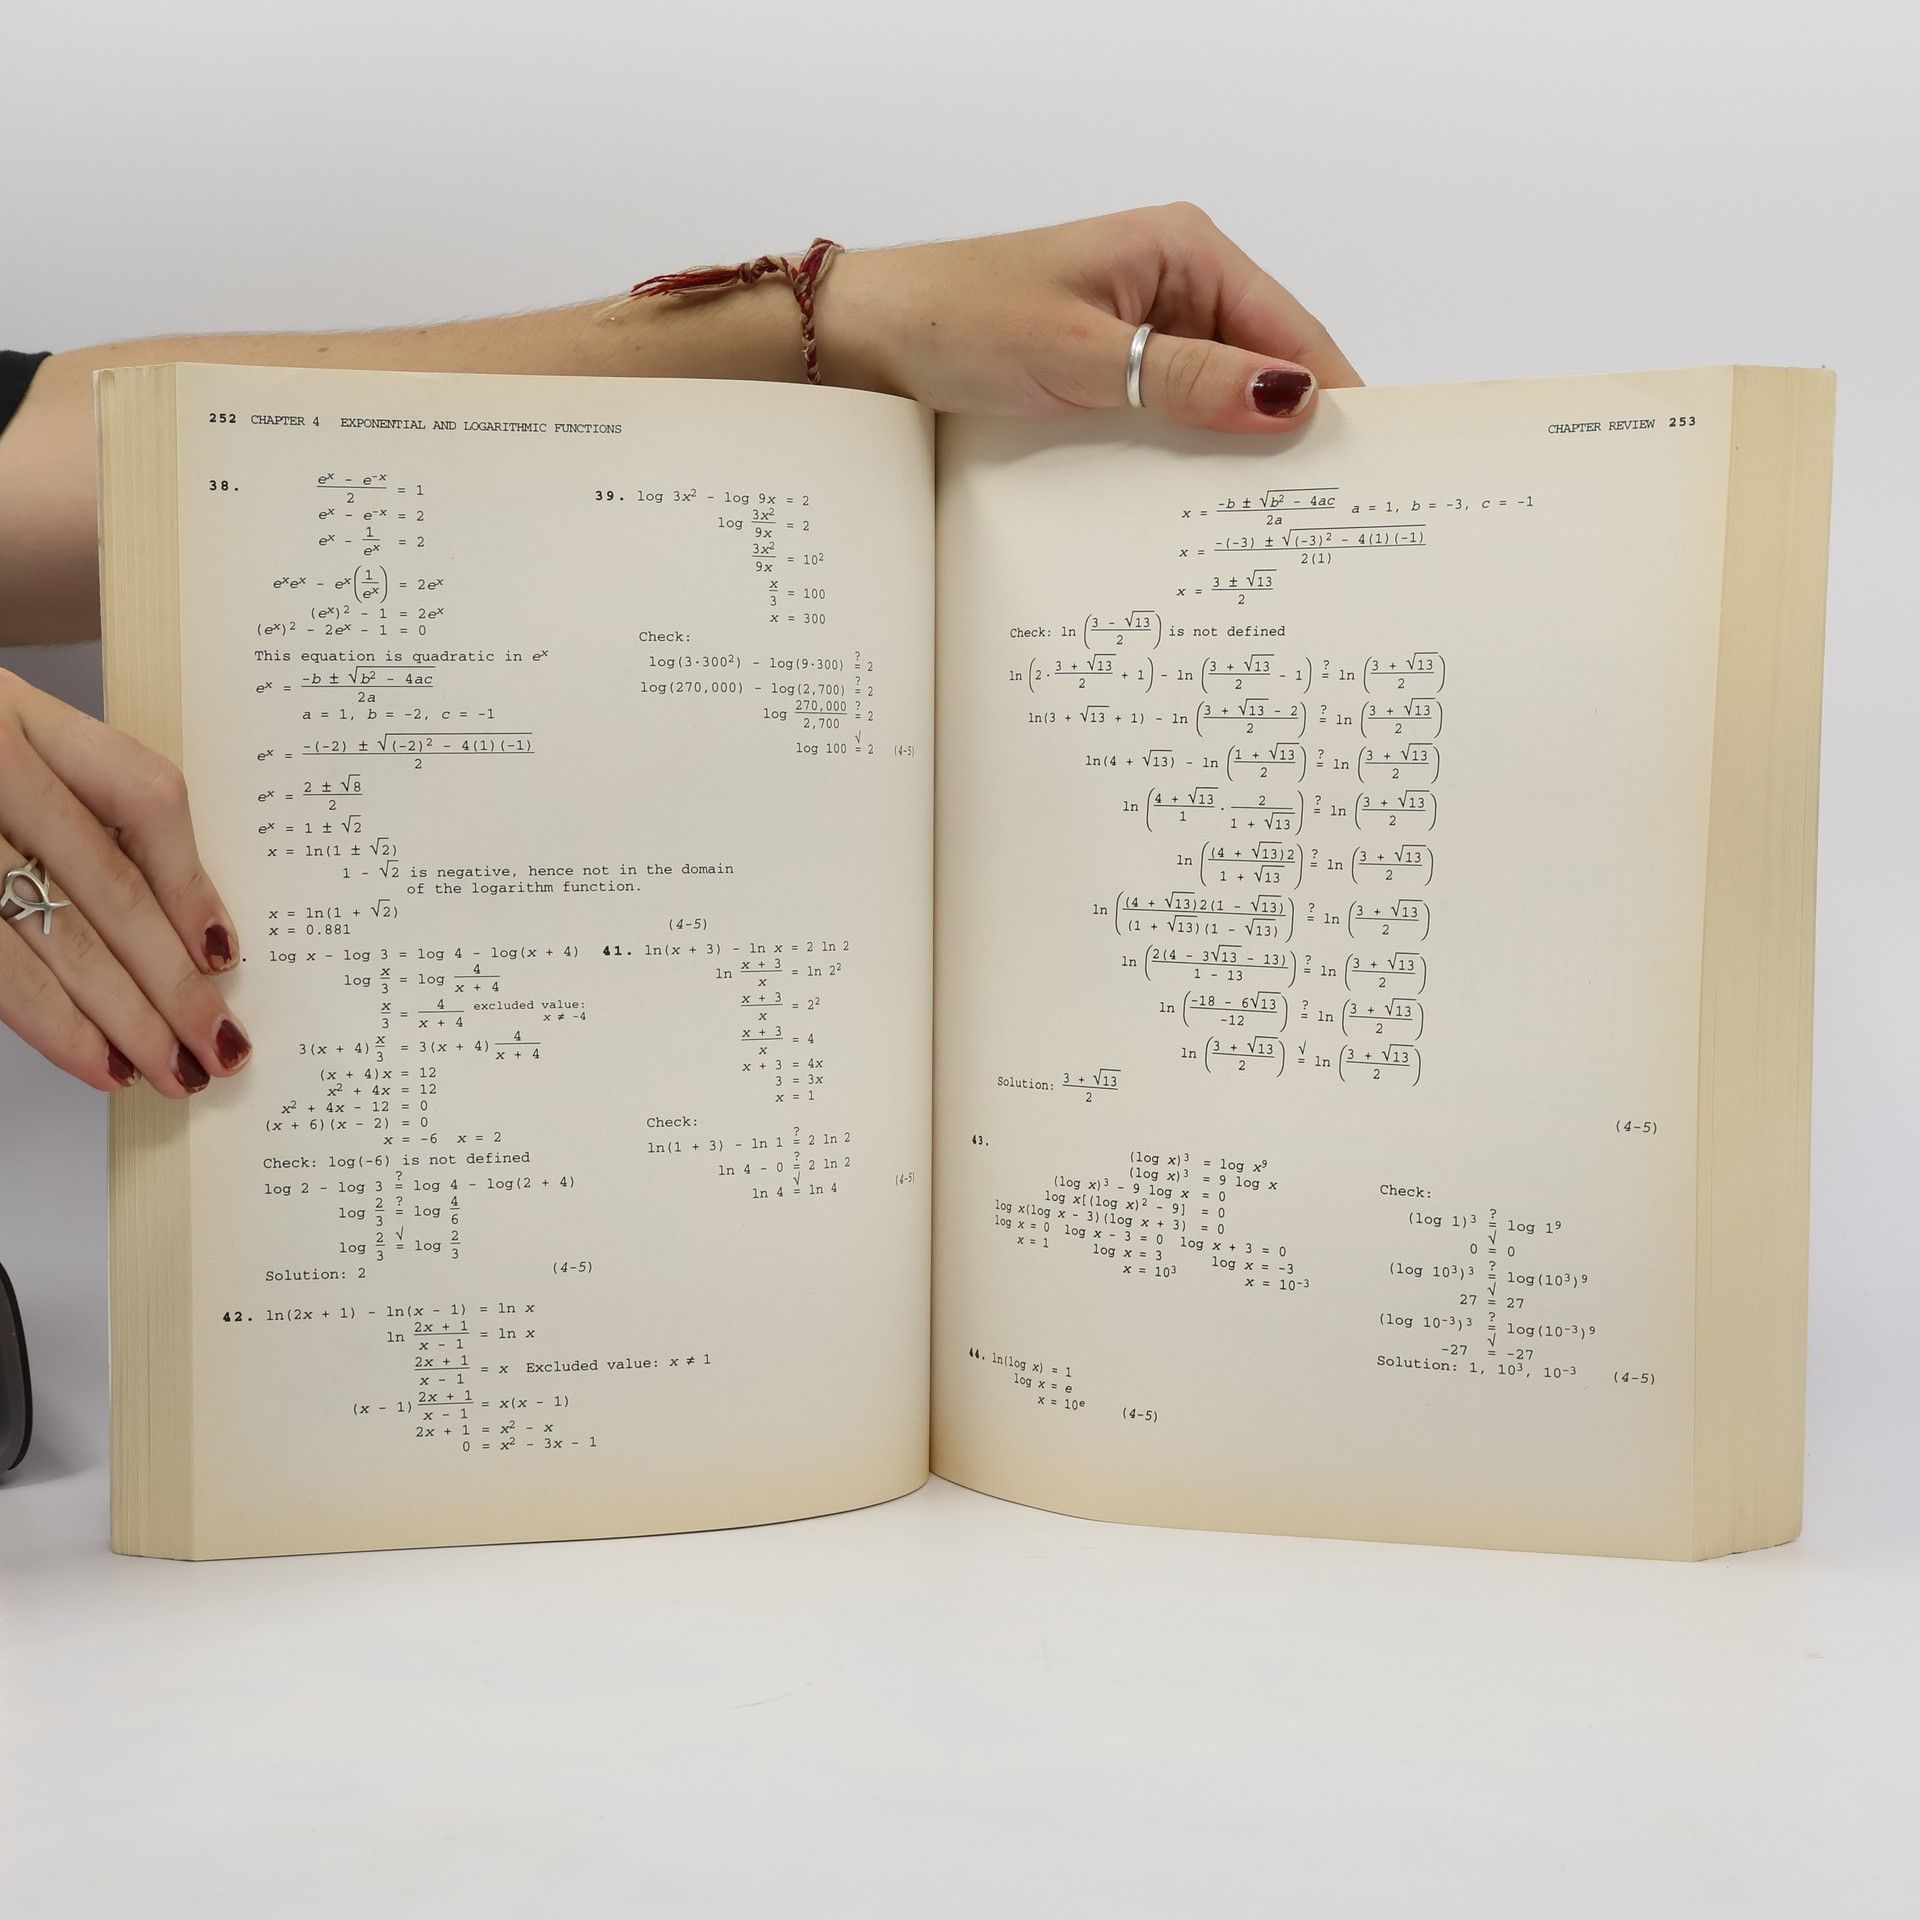 252 CHAPTER 4 EXPONENTIAL AND LOGARITHMIC FUNCTIONS
38. (eˣ - e⁻ˣ)/2 = 1
eˣ - e⁻ˣ = 2
eˣ - 1/eˣ = 2
eˣeˣ - eˣ(1/eˣ) = 2eˣ
(eˣ)² - 1 = 2eˣ
(eˣ)² - 2eˣ - 1 = 0
This equation is quadratic in eˣ
eˣ = (-b ± √(b² - 4ac))/2a
a = 1, b = -2, c = -1
eˣ = (-(-2) ± √((-2)² - 4(1)(-1)))/2
eˣ = (2 ± √8)/2
eˣ = 1 ± √2
x = ln(1 ± √2)
1 - √2 is negative, hence not in the domain
of the logarithm function.
x = ln(1 + √2)
x = 0.881
(4-5)
39. log 3x² - log 9x = 2
log 3x²/9x = 2
3x²/9x = 10²
x/3 = 100
x = 300
Check:
log(3·300²) - log(9·300) ≟ 2
log(270,000) - log(2,700) ≟ 2
log 270,000/2,700 ≟ 2
log 100 =√ 2 (4-5)
. log x - log 3 = log 4 - log(x + 4)
log x/3 = log 4/(x + 4)
x/3 = 4/(x + 4) excluded value:
x ≠ -4
3(x + 4) x/3 = 3(x + 4) 4/(x + 4)
(x + 4)x = 12
x² + 4x = 12
x² + 4x - 12 = 0
(x + 6)(x - 2) = 0
x = -6 x = 2
Check: log(-6) is not defined
log 2 - log 3 ≟ log 4 - log(2 + 4)
log 2/3 ≟ log 4/6
log 2/3 =√ log 2/3
Solution: 2 (4-5)
41. ln(x + 3) - ln x = 2 ln 2
ln (x + 3)/x = ln 2²
(x + 3)/x = 2²
(x + 3)/x = 4
x + 3 = 4x
3 = 3x
x = 1
Check:
ln(1 + 3) - ln 1 ≟ 2 ln 2
ln 4 - 0 ≟ 2 ln 2
ln 4 =√ ln 4 (4-5)
42. ln(2x + 1) - ln(x - 1) = ln x
ln (2x + 1)/(x - 1) = ln x
(2x + 1)/(x - 1) = x Excluded value: x ≠ 1
(x - 1) (2x + 1)/(x - 1) = x(x - 1)
2x + 1 = x² - x
0 = x² - 3x - 1
CHAPTER REVIEW 253
x = (-b ± √(b² - 4ac))/2a a = 1, b = -3, c = -1
x = (-(-3) ± √((-3)² - 4(1)(-1)))/2(1)
x = (3 ± √13)/2
Check: ln ((3 - √13)/2) is not defined
ln (2·(3 + √13)/2 + 1) - ln ((3 + √13)/2 - 1) ≟ ln ((3 + √13)/2)
ln(3 + √13 + 1) - ln ((3 + √13 - 2)/2) ≟ ln ((3 + √13)/2)
ln(4 + √13) - ln ((1 + √13)/2) ≟ ln ((3 + √13)/2)
ln ((4 + √13)/1 · 2/(1 + √13)) ≟ ln ((3 + √13)/2)
ln ((4 + √13)2/(1 + √13)) ≟ ln ((3 + √13)/2)
ln ((4 + √13)2(1 - √13)/(1 + √13)(1 - √13)) ≟ ln ((3 + √13)/2)
ln (2(4 - 3√13 - 13)/(1 - 13)) ≟ ln ((3 + √13)/2)
ln ((-18 - 6√13)/-12) ≟ ln ((3 + √13)/2)
ln ((3 + √13)/2) =√ ln ((3 + √13)/2)
Solution: (3 + √13)/2
(4-5)
43.
(log x)³ = log x⁹
(log x)³ = 9 log x
(log x)³ - 9 log x = 0
log x[(log x)² - 9] = 0
log x(log x - 3)(log x + 3) = 0
log x = 0 log x - 3 = 0 log x + 3 = 0
x = 1 log x = 3 log x = -3
x = 10³ x = 10⁻³
Check:
(log 1)³ ≟ log 1⁹
0 =√ 0
(log 10³)³ ≟ log(10³)⁹
27 =√ 27
(log 10⁻³)³ ≟ log(10⁻³)⁹
-27 =√ -27
Solution: 1, 10³, 10⁻³ (4-5)
44. ln(log x) = 1
log x = e
x = 10ᵉ (4-5)